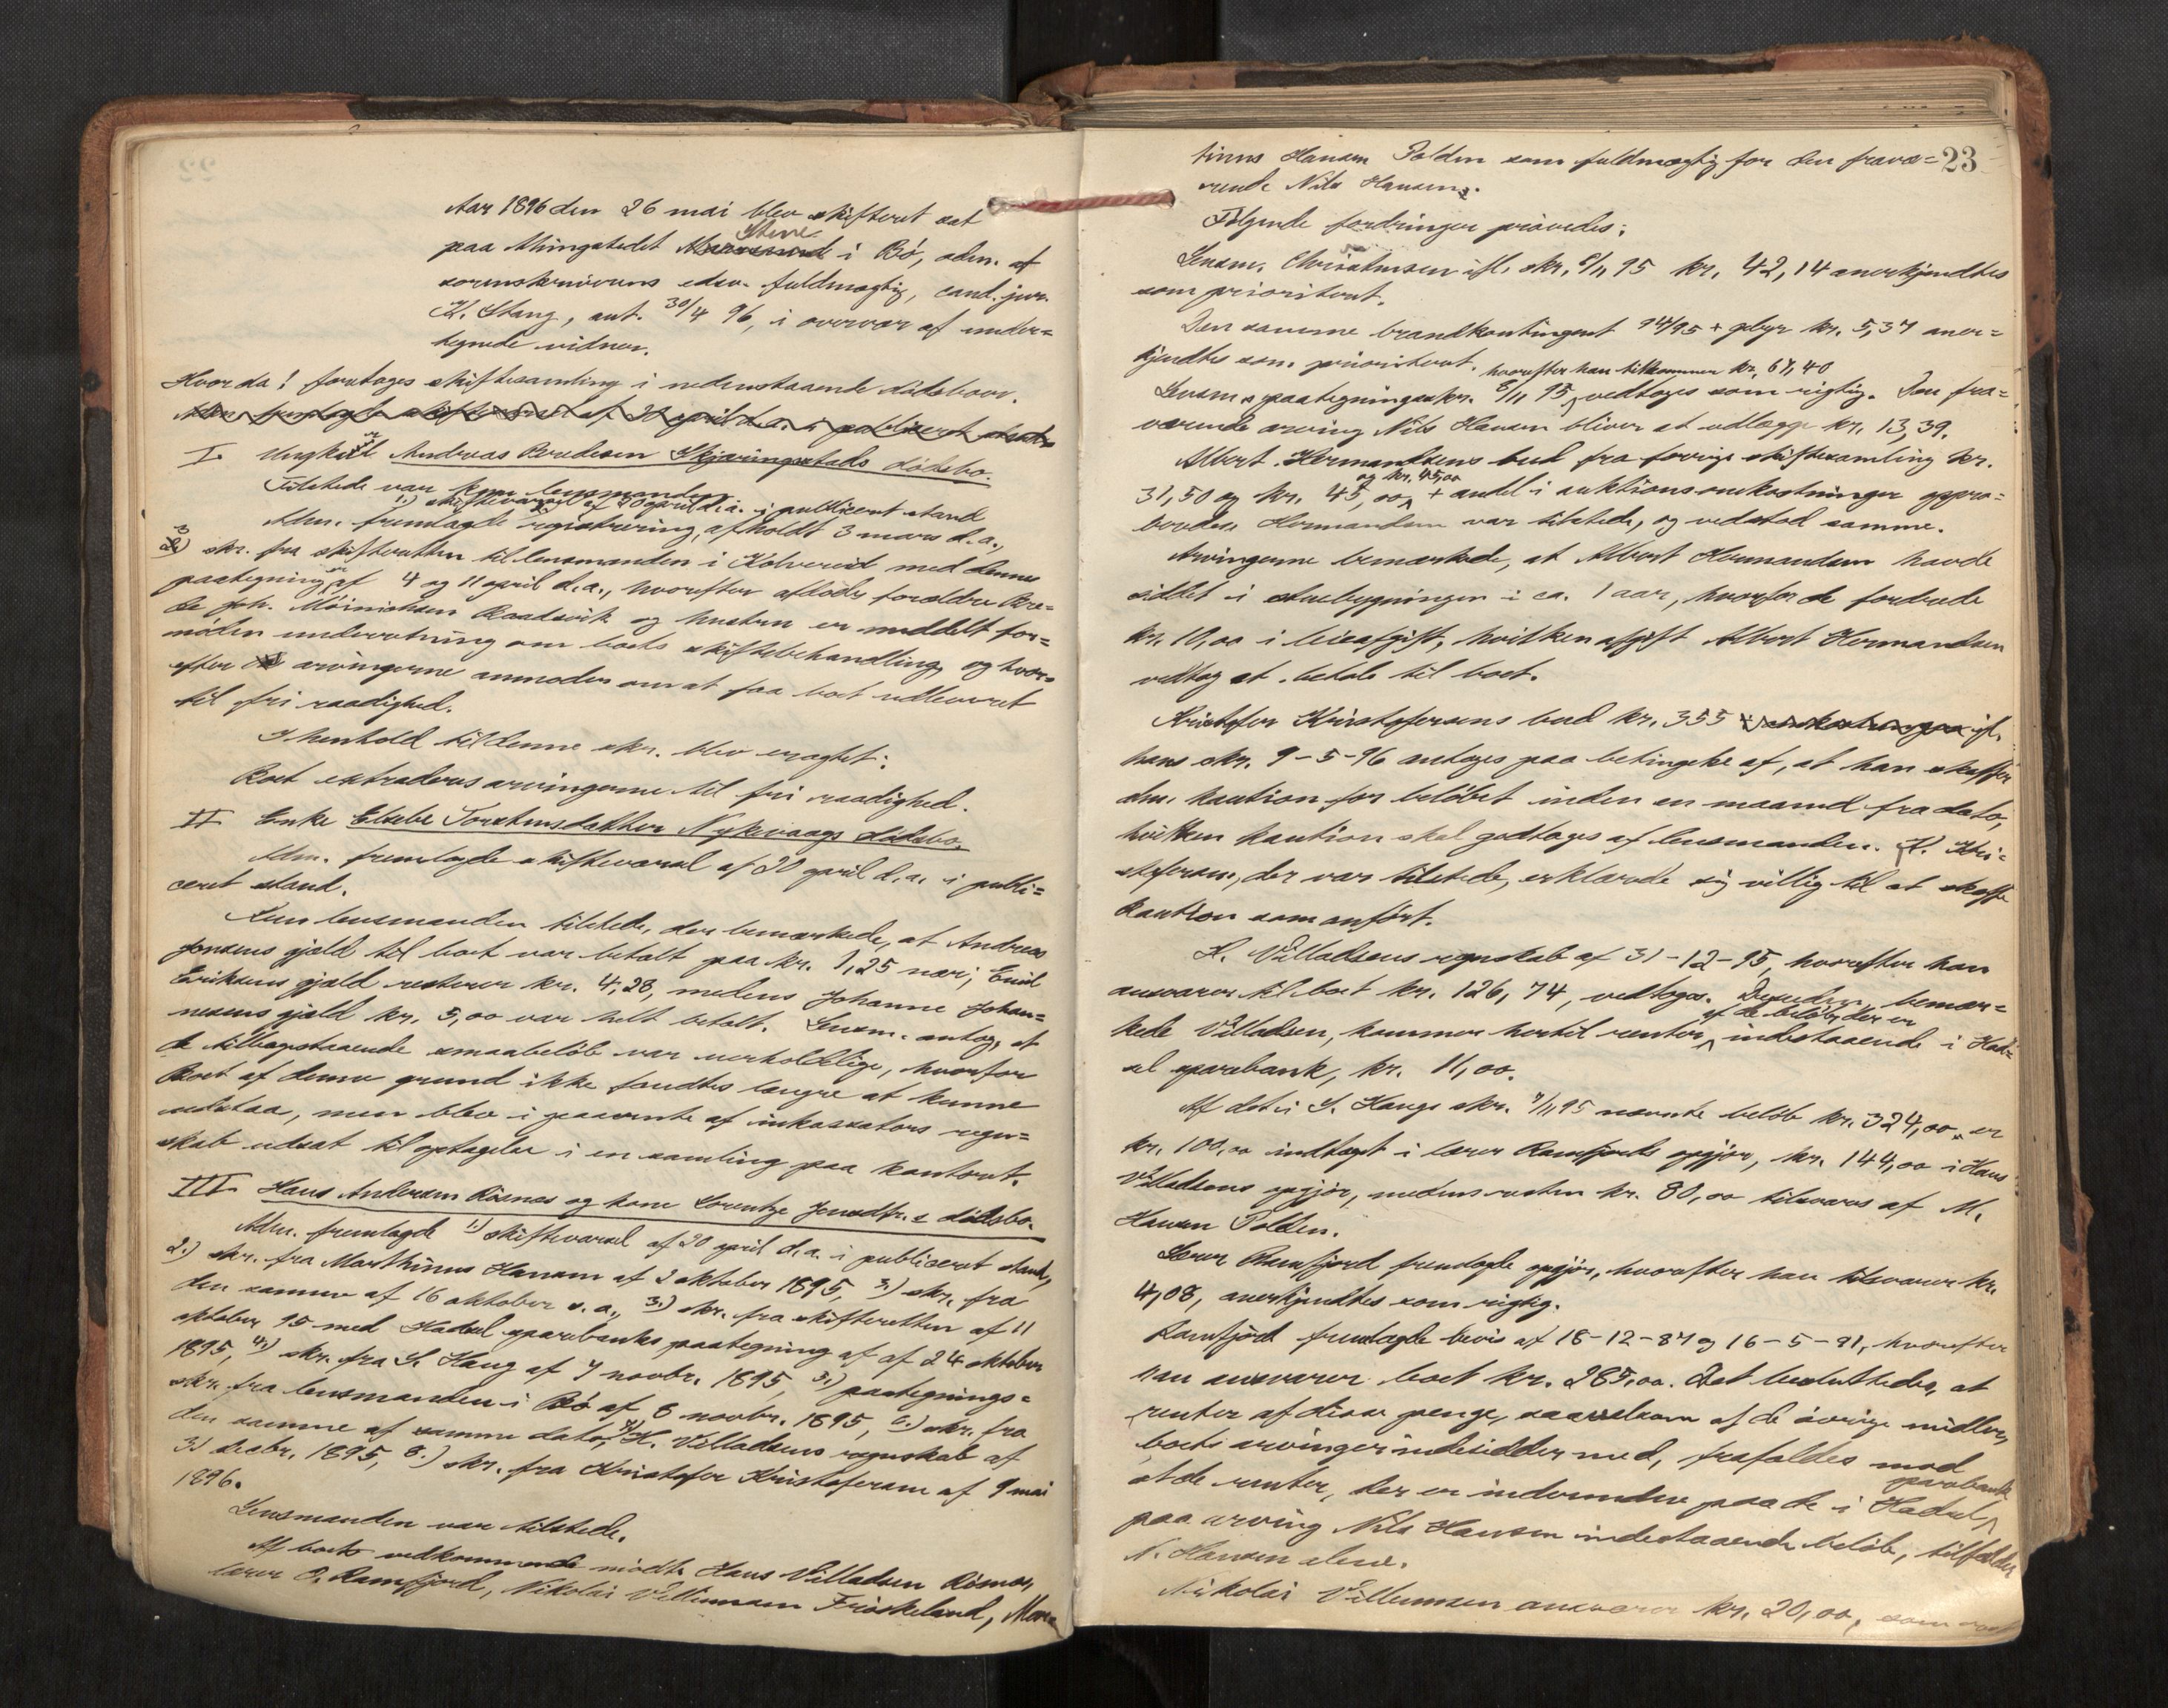 Aar 1896 den 26 mai blev skifteret sat
paa thingstedet Steine i Bö, adm. af
sorenskriverens edsv. fuldmægtig, cand. jur.
K. Stang, ant. 30/4 96, i overvær af under=
tegnede vidner.
Hvor da! foretoges skiftesamling i nedenstaaende dödsboer.
Adm. fremlagde skiftevarsel af 20 april d.a. i publiceret stand
I. Ungkarl Andreas Benediksen Skjæringstads dödsbo.
Tilstede var kun lensmanden
1.) skiftevarsel af 20 april d.a. i publiceret stand
Adm. fremlagde registrering, afholdt 3 mars d.a.,
3) skr. fra skifteretten til lensmanden i Kolvereid med dennes
paategning af 4 og 11 april d.a., hvorefter aflödes forældre
Joh. og hustru er meddelt for=
möden underretning om boets skiftebehandling, og hvor=
efter arvingerne anmoder om at faa boet udleveret
til fri raadighed.
I henhold til denne skr. blev eragtet:
Boet extraderes arvingerne til fri raadighed.
II Enke Elsebe Torstensdatter Nykvaags dödsbo.
Adm. fremlagde skiftevarsel af 20 april d.a. i publi=
ceret stand.
Kun lensmanden tilstede, der bemærkede, at Andreas
Jensens gjæld til boet var betalt paa kr. 1,25 nær; Emil
Eriksens gjæld resterer kr. 4,28, medens Johanne Johan=
nesens gjæld kr. 5,00 var helt betalt. Lensm. antog, at
de tilbagestaaende smaabelöb var uerholdelige, hvorfor
Boet af denne grund ikke fandtes længre at kunne
udstaa, men blev i paavente af inkassators regn=
skab udsat til optagelse i en samling paa kontoret.
III Hans Andersen Risnes og kone Lorentze Jensdtr.s dödsbo.
Adm. fremlagde 1.) skiftevarsel af 20 april d.a. i publiceret stand,
2.) skr. fra Marthinus Hansen af 2 oktober 1895, 3.) skr. fra
den samme af 16 oktober s.a., 3.) skr. fra skifteretten af 11
oktober 95 med Hadsel sparebanks paategning af af 24 oktober
1895, 4.) skr. fra S. Haug af 7 novbr. 1895, 5.) paategnings=
skr. fra lensmanden i Bö af 8 novbr. 1895, 6.) skr. fra
den samme af samme dato, 7.) H. Villadsens regnskab af
31 decbr. 1895, 8.) skr. fra Kristofer Kristofersen af 9 mai
1896.
Lensmanden var tilstede.
Af boets vedkommende mödte Hans Villadsen Risnes,
lærer O. Ramfjord, Nikolai Villumsen Friskeland, Mar=
23
tinus Hansen Polden som fuldmægtig for den fravæ=
rende Nils Hansen.
Fölgende fordringer prövedes:
Lensm. Christensen ifl. skr. 8/11 95 kr. 42,14 anerkjendtes
som prioritert.
Den samme brandkontingent 94/95 + gebyr kr. 5,37 aner=
kjendtes som prioritert.
hvorefter han tilkommer kr. 67,40
Lensm.s paategningsskr. 8/11 95 vedtoges som rigtig. Den fra=
værende arving Nils Hansen bliver at udlægge kr. 13,39.
Albert Hermandsens bud fra forrige skiftesamling kr.
og kr. 45,00
31,50 og kr. 45,00 + andel i auktionsomkostninger appro=
beredes. Hermandsen var tilstede, og vedstod samme.
Arvingerne bemærkede, at Albert Hermandsen havde
siddet i stuebygningen i ca. 1 aar, hvorfor de fordrede
kr. 10,00 i leieafgift, hvilken afgift Albert Hermandsen
vedtog at betale til boet.
Kristofer Kristofersens bud kr. 355 + omkostninger ifl.
hans skr. 9-5-96 antages paa betingelse af, at han skaffer
adm. kaution for belöbet inden en maaned fra dato,
hvilken kaution skal godtages af lensmanden. K. Kri=
stofersen, der var tilstede, erklærede sig villig til at skaffe
kaution som anfört.
H. Villadsens regnskab af 31-12-95, hvorefter han
ansvarer til boet kr. 126,74, vedtoges. Desuden, bemær=
af de belöb, der er
kede Villadsen, kommer hertil renter indestaaende i Had=
sel sparebank, kr. 11,00.
Af det i S. Haugs skr. 7/11 95 nævnte belöb kr. 324,00 er
kr. 100,00 indtaget i lærer Ramfjords opgjör, kr. 144,00 i Hans
Villadsens opgjör, medens resten kr. 80,00 tilsvares af M.
Hansen Polden.
Lærer Ramfjord fremlagde opgjör, hvorefter han tilsvarer kr.
4,08, anerkjendtes som rigtig.
Ramfjord fremlagde bevis af 18-12-87 og 16-5-91, hvorefter
han ansvarer boet kr. 285,00. Det besluttedes, at
renter af disse penge, saavelsom af de övrige midler,
boets arvinger indesidder med, frafaldes mod
at de renter, der er indvundne paa de i Hadsel sparebank
paa arving Nils Hansen indestaaende belöb, tilfalder
N. Hansen alene.
Nikolai Villumsen ansvarer kr. 20,00, som